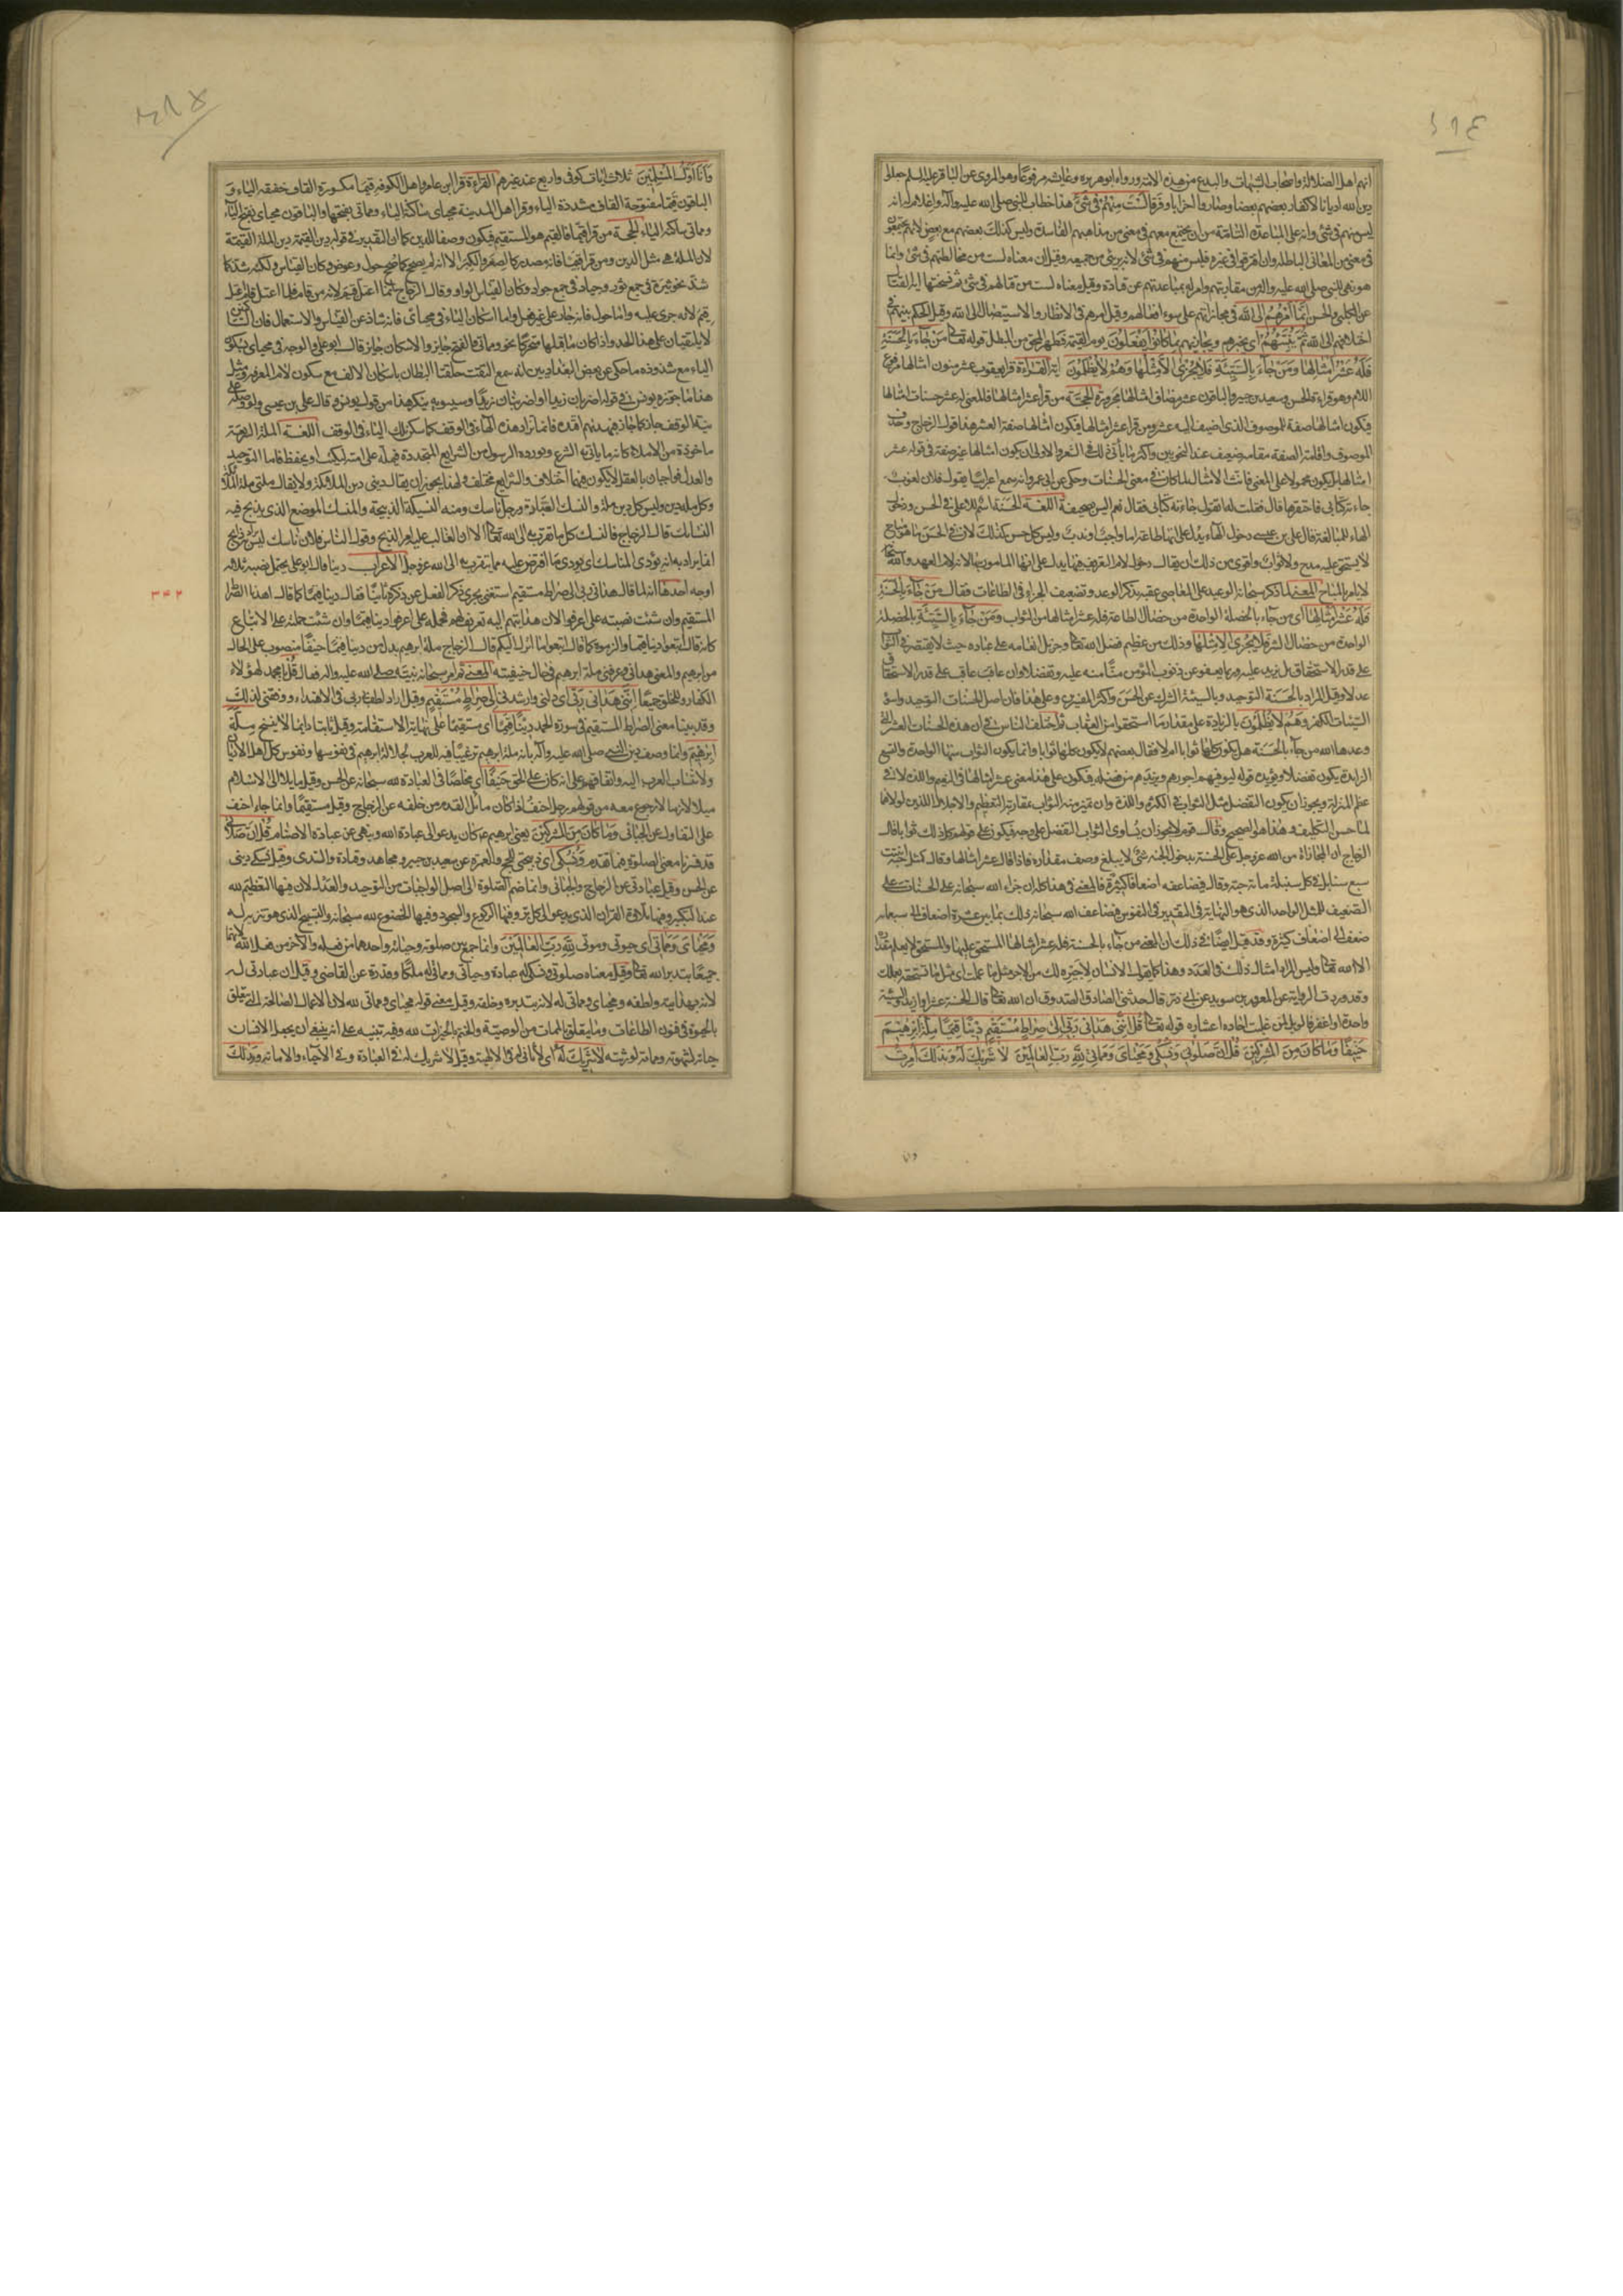 انهم اهل الضلالة واصحاب الشبهات والبدع من هذه الامة ورواه ابوهريره وعايشه مرفوعا وهو المروى عن الباقر عليه السلم جعلوا
دين الله اديانا لاكفار بعضهم بعضا وصاروا احزابا وفرقا لَسْتَ مِنْهُمْ فى شَىْءٍ هذا خطاب للنبى صلى الله عليه وآله واعلام له انه
ليس منهم فى شئ وانه على المباعدة التامة من ان يجتمع معهم فى معنى من مذاهبهم الفاسدة وليس كذلك بعضهم مع بعض لانهم يجتمعون
فى معنى من المعانى الباطله وان افترقوا فى غيره فليس منهم فى شئ لانه برئ من جميعه وقيل ان معناه لست من مخالطتهم فى شئ وانما
هو نهى للنبى صلى الله عليه وآله من مقاربتهم وامر له بمباعدتهم عن قتادة وقيل معناه لست من قتالهم فى شئ ثم نسختها آية القتال
عن الكلبى والحسن اِنَّما اَمْرُهُمْ اِلَى اللهِ فى مجازاتهم على سوء افعالهم وقيل امرهم فى الانظار والاستيصال الى الله وقيل الحكم بينهم فى
اختلافهم الى الله ثُمَّ يُنَبِّئُهُمْ اى يخبرهم ويجازيهم بِما كانُوا يَفْعَلُونَ يوم القيمة فيظهر المحق من المبطل قوله تعالى مَنْ جاءَ بِالْحَسَنَةِ
فَلَهُ عَشْرُ اَمْثالِها وَمَنْ جاءَ بِالسَّيِّئَةِ فَلا يُجْزى اِلاّ مِثْلَها وَهُمْ لا يُظْلَمُونَ آية القراءة قرا يعقوب عشر منون امثالها برفع
اللام وهو قراءة الحسن وسعيد بن جبير والباقون عشر مضاف امثالها مجرورة الحجة من قرا عشر امثالها فالمعنى له عشر حسنات امثالها
فيكون امثالها صفة للموصوف الذى اضيف اليه عشر ومن قرا عشر امثالها فيكون امثالها صفة العشر هذا قول الزجاج وحذف
الموصوف واقامة الصفة مقامه ضعيف عند النحويين واكثر ما يأتى ذلك فى الشعر والاولى ان يكون امثالها غير صفة فى قوله عشر
امثالها بل يكون محمولا على المعنى فانث الامثال لما كان فى معنى الحسنات وحكى عن ابى عمرو انه سمع اعرابيا يقول فلان لغوب
جاءته كتابى فاحتقرها قال فقلت له اتقول جاءته كتابى فقال نعم اليس بصحيفة اللغة الحسنة اسم للاعلى فى الحسن ودخلت
الهاء للمبالغة قال على بن عيسى دخول الهاء يدل على انها طاعة اما واجب او ندب وليس كل حسن كذلك لان فى الحسن ما هو مباح
لا يستحق عليه مدح ولا ثواب واقوى من ذلك ان يقال دخول لام التعريف فيها يدل على انها المامور بها لان لام للعهد والله تعالى
لا يامر بالمباح المعنى لما ذكر سبحانه الوعيد على المعاصى عقبه بذكر الوعد وتضعيف الجزاء فى الطاعات فقال مَنْ جاءَ بِالْحَسَنَةِ
فَلَهُ عَشْرُ اَمْثالِها اى من جاء بالخصلة الواحدة من خصال الطاعة فله عشر امثالها من الثواب وَمَنْ جاءَ بِالسَّيِّئَةِ بالخصلة
الواحدة من خصال الشر فَلا يُجْزى اِلاّ مِثْلَها وذلك من عظيم فضل الله تعالى وجزيل انعامه على عباده حيث لا يقتصر فى الثواب
على قدر الاستحقاق بل يزيد عليه وربما يعفو عن ذنوب المؤمن منّا منه عليه وتفضلا وان عاقب عاقب على قدر الاستحقاق
عدلا وقيل المراد بالحَسَنَة التوحيد وبالسيئة الشرك عن الحسن واكثر المفسرين وعلى هذا فان اصل الحسنات التوحيد واسوء
السيئات الكفر وَهُمْ لا يُظْلَمُونَ بالزيادة على مقدار ما استحقوا من العقاب ثم اختلف الناس فى ان هذه الحسنات العشر التى
وعدها الله من جاء بالحسنة هل يكون كلها ثوابا ام لا فقال بعضهم لا يكون كلها ثوابا وانما يكون الثواب منها الواحدة والتسع
الزايدة يكون تفضلا ويؤيده قوله ليوفيهم اجورهم ويزيدهم من فضله فيكون على هذا معنى عشر امثالها فى النعيم واللذة لا فى
عظم المنزلة ويجوز ان يكون التفضل مثل الثواب فى الكثرة واللذة وان تميز منه الثواب بمقارنة التعظيم والاجلال اللذين لولاهما
لما حسن التكليف وهذا هو الصحيح وقال قوم لا يجوز ان يساوى الثواب التفضل على وجه فيكون على قولهم كل ذلك ثوابا قال
الزجاج ان المجازاة من الله عز وجل على الحسنة بدخول الجنة شئ لا يبلغ وصف مقداره فاذا قال عشر امثالها وقال كمثل حبة انبتت
سبع سنابل فى كل سنبلة مائة حبة وقال فيضاعفه اضعافا كثيرة فالمعنى فى هذا كله ان جزاء الله سبحانه على الحسنات على
التضعيف للمثل الواحد الذى هو النهاية فى التقدير فى النفوس فيضاعف الله سبحانه ذلك بما بين عشرة اضعاف الى سبعمائة
ضعف الى اضعاف كثيرة وقد قيل ايضا فى ذلك ان المعنى من جاء بالحسنة فله عشر امثالها المستحق عليها والمستحق لا يعلم مقداره
الا الله تعالى وليس المراد امثال ذلك فى العدد وهذا كما يقول الانسان لاجيره لك من الاجر مثل ما عملت اى مثل ما تستحقه بعملك
وقد وردت الرواية عن المعرور بن سويد عن ابى ذر قال حدثنى الصادق المصدوق ان الله تعالى قال الحسنة عشر او ازيد والسيئة
واحدة او اغفر فالويل لمن غلبت احاده اعشاره قوله تعالى قُلْ اِنَّنى هَدانى رَبّى اِلى صِراطٍ مُسْتَقيمٍ دينًا قِيَمًا مِلَّةَ اِبْرهيمَ
حَنيفًا وَما كانَ مِنَ الْمُشْرِكينَ قُلْ اِنَّ صَلوتى وَنُسُكى وَمَحْياىَ وَمَماتى لِلّهِ رَبِّ الْعالَمينَ لا شَريكَ لَهُ وَبِذلِكَ اُمِرْتُ
وَاَنَا اَوَّلُ الْمُسْلِمينَ ثلاث ايات كوفى واربع عند غيرهم القراءة قرا ابن عامر واهل الكوفة قيما مكسورة القاف خفيفة الياء و
الباقون قَيِّما مفتوحة القاف مشددة الياء وقرا اهل المدينة محياى ساكنة الياء ومماتى بفتحها والباقون محياى بفتح الياء
ومماتى ساكنة الياء الحجة من قرا قيما فالقيم هو المستقيم فيكون وصفا للدين كما ان التقدير فى قوله دين القيمة دين الملة القيمة
لان الملة هى مثل الدين ومن قرا قيما فانه مصدر كالصغر والكبر الا انه لم يصح كما صح حول وعوض وكان القياس ولكنه شذ كما
شذ نحو ثيرة فى جمع ثور وجياد فى جمع جواد وكان القياس الواو وقال الزجاج انما اعتل قيم لانه من قام فلما اعتل قام اعتل
قيم لانه جرى عليه واما حول فانه جار على غير فعل واما اسكان الياء فى محياى فانه شاذ عن القياس والاستعمال فان الساكنين
لا يلتقيان على هذا الحد واذا كان ما قبلها متحركا نحو ومماتى فالفتح جايز والاسكان جايز قال ابوعلى والوجه فى محياى بسكون
الياء مع شذوذه ما حكى عن بعض البغداديين انه سمع التقت حلقتا البطان باسكان الالف مع سكون لام المعرفة ومثل
هذا ما جوزه يونس فى قوله اضربان زيدا واضربنان زيدا وسيبويه ينكر هذا من قول يونس وقال على بن عيسى ولو وصله على
نية الوقف جاز كما جاز فبهديهم اقتده فانما تزاد هذه الهاء فى الوقف كما سكن تلك الياء فى الوقف اللغة الملة الشريعة
ماخوذة من الاملاء كانه ما يأتى به الشرع ويورده الرسول من الشرايع المتجددة فيمله على امته ليكتب او يحفظ فاما التوحيد
والعدل فواجبان بالعقل لا يكون فيهما اختلاف والشرايع مختلف ولهذا يجوز ان يقال دينى دين الملائكة ولا يقال ملتى ملة الملائكة
وكل ملة دين وليس كل دين ملة والنسك العبادة ورجل ناسك ومنه النسيكة الذبيحة والمنسك الموضع الذى يذبح فيه
النسايك قال الزجاج فالنسك كل ما تقرب به الى الله تعالى الا ان الغالب عليه امر الذبح وقول الناس فلان ناسك ليس يراد به ذبح
انما يراد به انه يؤدى المناسك اى يؤدى ما افترض عليه مما يتقرب به الى الله عز وجل الاعراب دينا قال ابو على يحتمل نصبه ثلاثة
اوجه احدها انه لما قال هدانى ربى الى صراط مستقيم استغنى بجرى ذكر الفعل عن ذكره ثانيا فقال دينا قيما كما قال اهدنا الصراط
المستقيم وان شئت نصبته على اعرفوا لان هدايتهم اليه تعريف لهم فحمله على اعرفوا دينا قيما وان شئت حملته على الاتباع
كانه قال اتبعوا دينا قيما والزموه كما قال اتبعوا ما انزل اليكم قال الزجاج ملة ابرهيم بدل من دينا قيما حنيفا منصوب على الحال
من ابرهيم والمعنى هدانى وعرفنى ملة ابرهيم فى حال حنيفيته المعنى ثم امر سبحانه نبيه صلى الله عليه وآله فقال قُلْ يا محمد لهؤلاء
الكفار وللخلق جميعا اِنَّنى هَدانى رَبّى اى دلنى وارشدنى اِلى صِراطٍ مُسْتَقيمٍ وقيل اراد لطف بى ربى فى الاهتداء ووفقنى لذلك
وقد بينا معنى الصراط المستقيم فى سورة الحمد دينًا قِيَمًا اى مستقيما على نهاية الاستقامة وقيل ثابتا دايما لا ينسخ مِلَّةَ
اِبْرهيمَ وانما وصف دين النبى صلى الله عليه وآله بانه ملة ابرهيم ترغيبا فيه للعرب لجلالة ابرهيم فى نفوسها ونفوس كل اهل الاديان
ولانتساب العرب اليه واتفاقهم على انه كان على الحق حَنيفًا اى مخلصا فى العبادة لله سبحانه عن الحسن وقيل مايلا الى الاسلام
ميلا لازما لا رجوع معه من قولهم رجل احنف اذا كان مائل القدم من خلقه عن الزجاج وقيل مستقيما وانما جاء احنف
على التفاول عن الجبائى وَما كانَ مِنَ الْمُشْرِكينَ يعنى ابرهيم ع كان يدعو الى عبادة الله وينهى عن عبادة الاصنام قُلْ اِنَّ صَلوتى
قد فسرنا معنى الصلوة فيما تقدم وَنُسُكى اى ذبيحتى للحج والعمرة عن سعيد بن جبير ومجاهد وقتادة والسدى وقيل نسكى دينى
عن الحسن وقيل عبادتى عن الزجاج والجبائى وانما ضم الصلوة الى اصل الواجبات من التوحيد والعدل لان فيها التعظيم لله
عند التكبير وفيها تلاوة القران الذى يدعو الى كل بر وفيها الركوع والسجود وفيها الخضوع لله سبحانه والتسبيح الذى هو تنزيه له
وَمَحْياىَ وَمَماتى اى حيوتى وموتى لِلّهِ رَبِّ الْعالَمينَ وانما جمع بين صلوته وحياته واحدهما من فعله والآخر من فعل الله لانهما
جميعا بتدبير الله تعالى وقيل معناه صلوتى ونسكى له عبادة وحياتى ومماتى له ملكا وقدرة عن القاضى وقيل ان عبادتى له
لانه بهدايته ولطفه ومحياى ومماتى له لانه بتدبيره وخلقه وقيل معنى قوله محياى ومماتى لله لان الاعمال الصالحة التى تتعلق
بالحيوة فى فنون الطاعات وما يتعلق بالممات من الوصية والختم بالخيرات لله وفيه تنبيه على انه ينبغى ان يجعل الانسان
حياته لشهوته ومماته لورثته لا شَريكَ لَهُ اى لا ثانى له فى الالهية وقيل لا شريك له فى العبادة وفى الاحياء والاماتة وَبِذلِكَ
۳۴۲